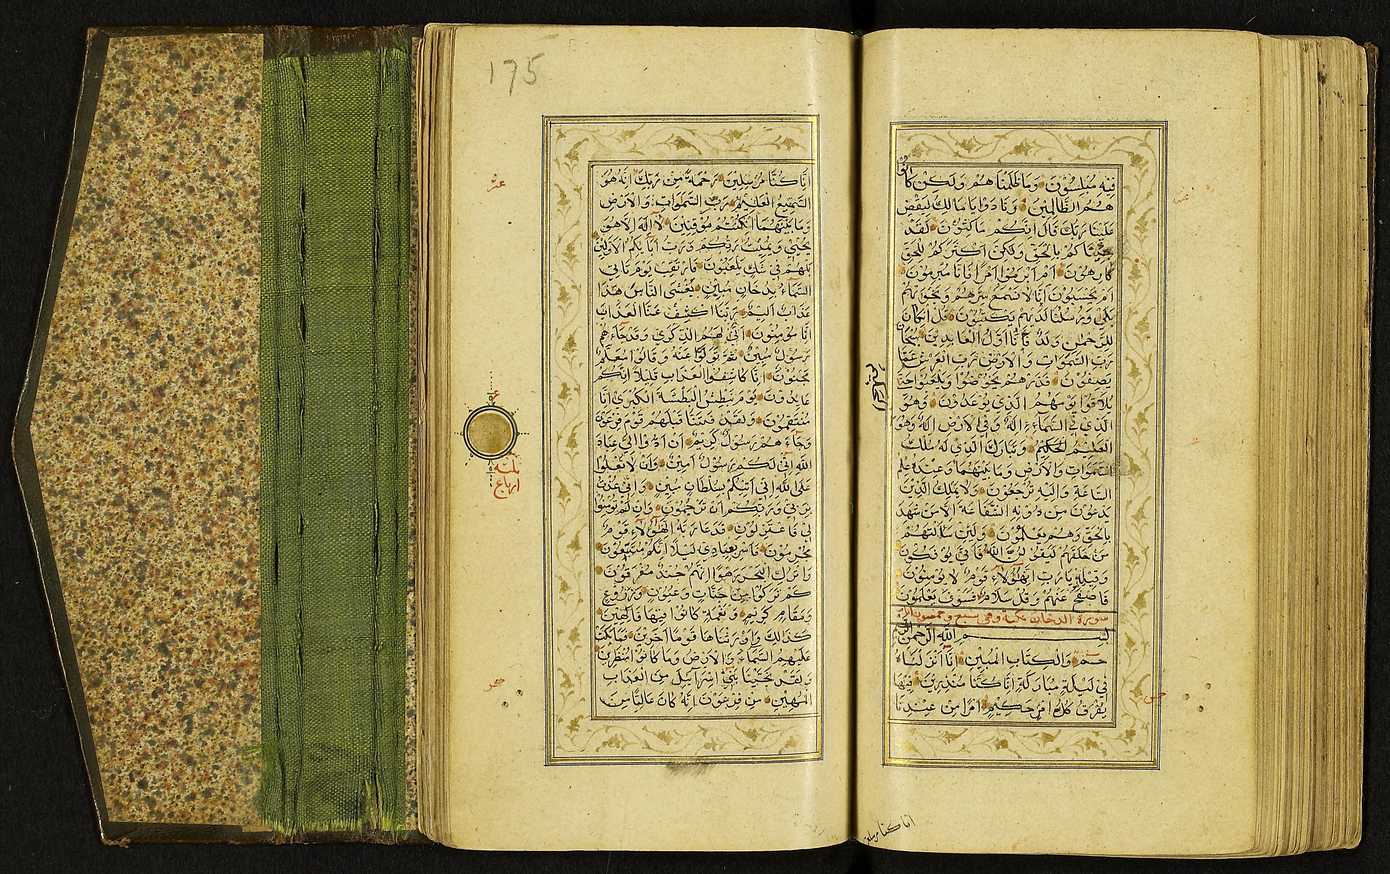 فيه مبلسون وما ظلمناهم ولكن كانوا
هم الظالمين ونادوا يا مالك ليقض
علينا ربك قال انكم ماكثون لقد
جئناكم بالحق ولكن اكثركم للحق
كارهون ام ابرموا امرا فانا مبرمون
ام يحسبون انا لا نسمع سرهم ونجويهم
بلى ورسلنا لديهم يكتبون قل ان كان
للرحمن ولد فانا اول العابدين سبحان
رب السموات والارض رب العرش عما
يصفون فذرهم يخوضوا ويلعبوا حتى
يلاقوا يومهم الذي يوعدون وهو
الذي في السماء اله وفي الارض اله وهو
العليم الحكيم وتبارك الذي له ملك
السموات والارض وما بينهما وعنده علم
الساعة واليه ترجعون ولا يملك الذين
يدعون من دونه الشفاعة الا من شهد
بالحق وهم يعلمون ولئن سالتهم
من خلقهم ليقولن الله فانى يؤفكون
وقيله يا رب ان هؤلاء قوم لا يؤمنون
فاصفح عنهم وقل سلام فسوف يعلمون
سورة الدخان مكية وهي سبع وخمسون اية
بسم الله الرحمن الرحيم
حم والكتاب المبين انا انزلناه
في ليلة مباركة انا كنا منذرين فيها
يفرق كل امر حكيم امرا من عندنا
انا كنا مرسلين
175
انا كنا مرسلين رحمة من ربك انه هو
السميع العليم رب السموات والارض
وما بينهما ان كنتم موقنين لا اله الا هو
يحيي ويميت ربكم ورب ابائكم الاولين
بل هم في شك يلعبون فارتقب يوم تاتي
السماء بدخان مبين يغشى الناس هذا
عذاب اليم ربنا اكشف عنا العذاب
انا مؤمنون انى لهم الذكرى وقد جاءهم
رسول مبين ثم تولوا عنه وقالوا معلم
مجنون انا كاشفوا العذاب قليلا انكم
عائدون يوم نبطش البطشة الكبرى انا
منتقمون ولقد فتنا قبلهم قوم فرعون
وجاءهم رسول كريم ان ادوا الي عباد
الله اني لكم رسول امين وان لا تعلوا
على الله اني اتيكم بسلطان مبين واني عذت
بربي وربكم ان ترجمون وان لم تؤمنوا
لي فاعتزلون فدعا ربه ان هؤلاء قوم
مجرمون فاسر بعبادي ليلا انكم متبعون
واترك البحر رهوا انهم جند مغرقون
كم تركوا من جنات وعيون وزروع
ومقام كريم ونعمة كانوا فيها فاكهين
كذلك واورثناها قوما اخرين فما بكت
عليهم السماء والارض وما كانوا منظرين
ولقد نجينا بني اسرائيل من العذاب
المهين من فرعون انه كان عاليا من
عشر
ثلثة
ارباع